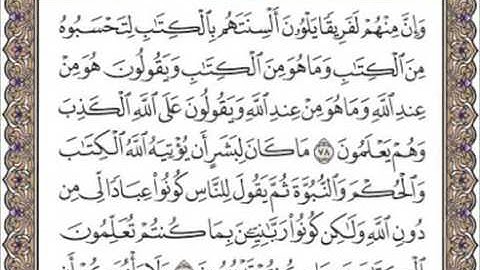 وَإِنَّ مِنْهُمْ لَفَرِيقًا يَلْوُۥنَ أَلْسِنَتَهُم بِٱلْكِتَٰبِ لِتَحْسَبُوهُ
مِنَ ٱلْكِتَٰبِ وَمَا هُوَ مِنَ ٱلْكِتَٰبِ وَيَقُولُونَ هُوَ مِنْ
عِندِ ٱللَّهِ وَمَا هُوَ مِنْ عِندِ ٱللَّهِ وَيَقُولُونَ عَلَى ٱللَّهِ ٱلْكَذِبَ
وَهُمْ يَعْلَمُونَ ٧٨ مَا كَانَ لِبَشَرٍ أَن يُؤْتِيَهُ ٱللَّهُ ٱلْكِتَٰبَ
وَٱلْحُكْمَ وَٱلنُّبُوَّةَ ثُمَّ يَقُولَ لِلنَّاسِ كُونُوا۟ عِبَادًا لِّى مِن
دُونِ ٱللَّهِ وَلَٰكِن كُونُوا۟ رَبَّٰنِيِّۦنَ بِمَا كُنتُمْ تُعَلِّمُونَ